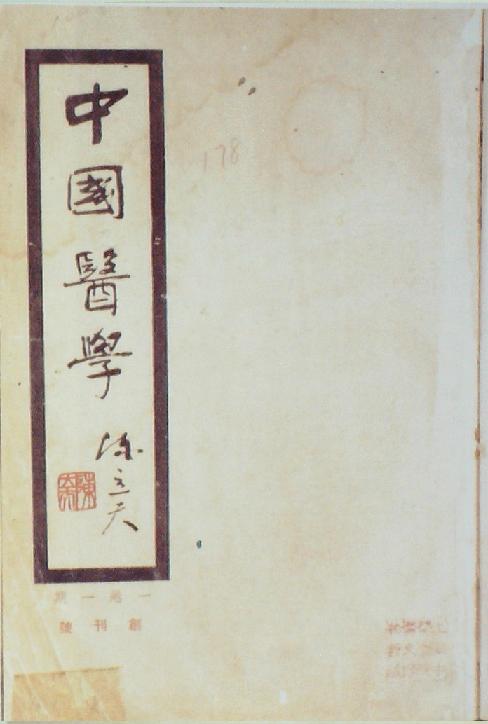 中國醫學
陳立夫
178
一卷一期
創刊號